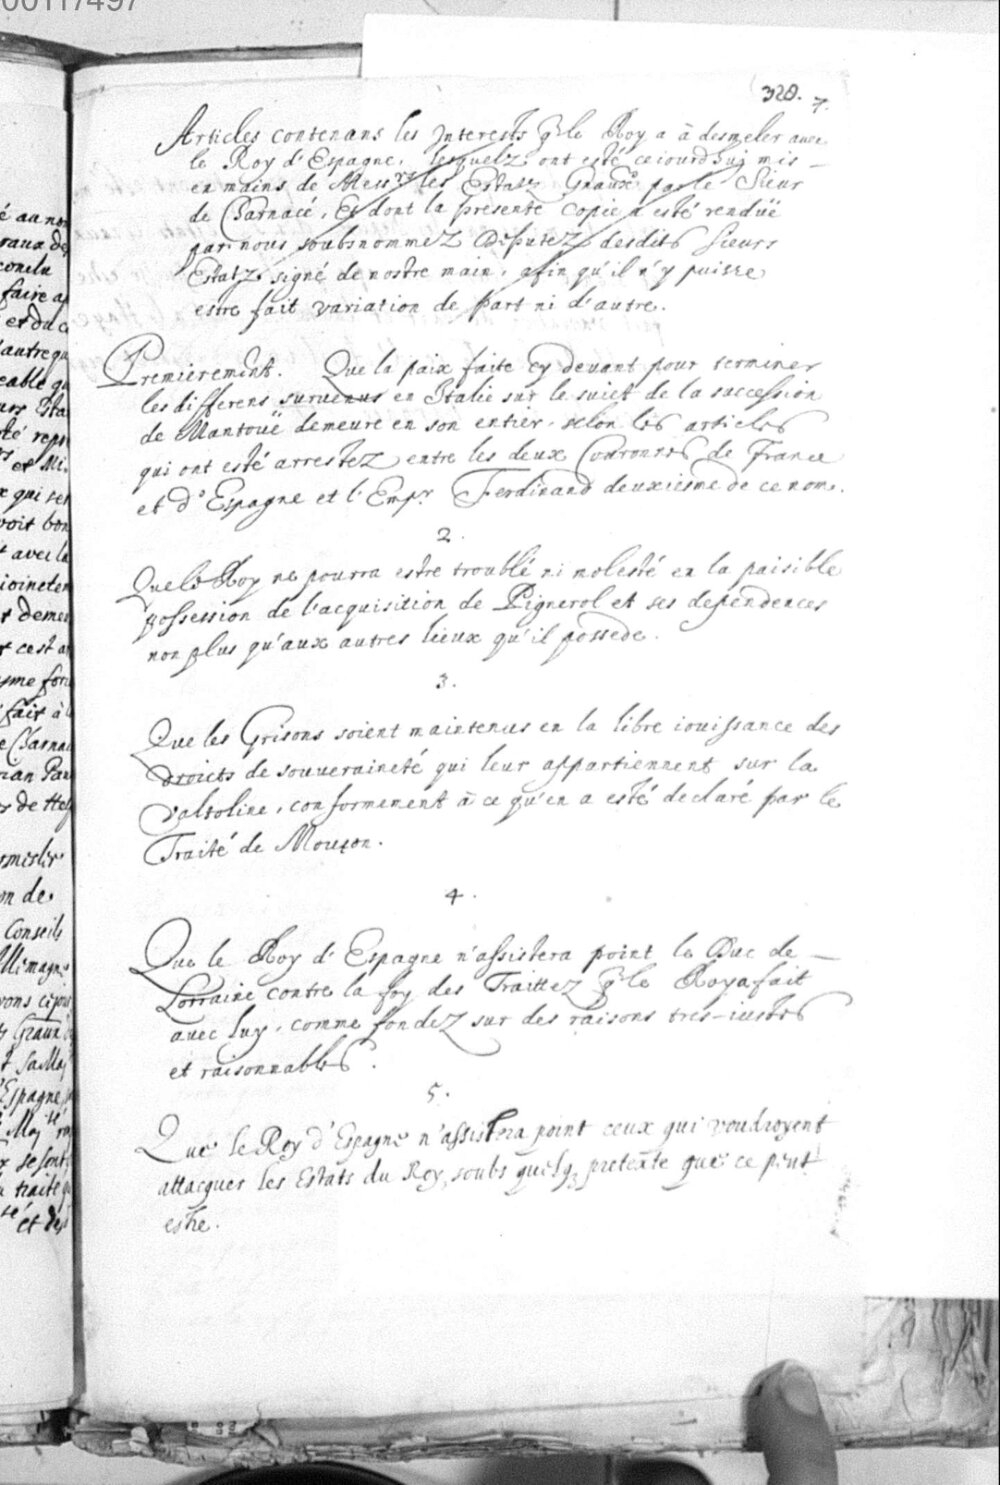 00117497
328. 7.
Articles contenans les Interests q̃ le Roy a à desmeler avec
le Roy d'Espagne, lesquelz ont esté ceiourdhuy mis
en mains de Mess.rs les Estatz Gnaux par le Sieur
de Charnacé, Et dont la presente copie a esté renduë
par nous soubsnommez Deputez desdits sieurs
Estatz signé de nostre main, afin qu'il n'y puisse
estre fait variation de part ni d'autre.
Premierement. Que la paix faite cy devant pour terminer
les differens survenus en Italie sur le suiet de la succession
de Mantouë demeure en son entier, selon les articles
qui ont esté arrestez entre les deux Couronnes de France
et d'Espagne et l'Emp.r Ferdinand deuxiesme de ce nom.
2.
Que le Roy ne pourra estre troublé ni molesté en la paisible
possession de l'acquisition de Pignerol et ses dependences
non plus qu'aux autres lieux qu'il possede.
3.
Que les Grisons soient maintenus en la libre iouissance des
droicts de souveraineté qui leur appartiennent sur la
Valtoline, conformement à ce qu'en a esté declaré par le
Traité de Mouçon.
4.
Que le Roy d'Espagne n'assistera point le Duc de
Lorraine contre la foy des Traittez q̃ le Roy a fait
avec luy, comme fondez sur des raisons tres-iustes
et raisonnables.
5.
Que le Roy d'Espagne n'assistera point ceux qui voudroyent
attacquer les Estats du Roy, soubs quelq3 pretexte que ce peut
estre.